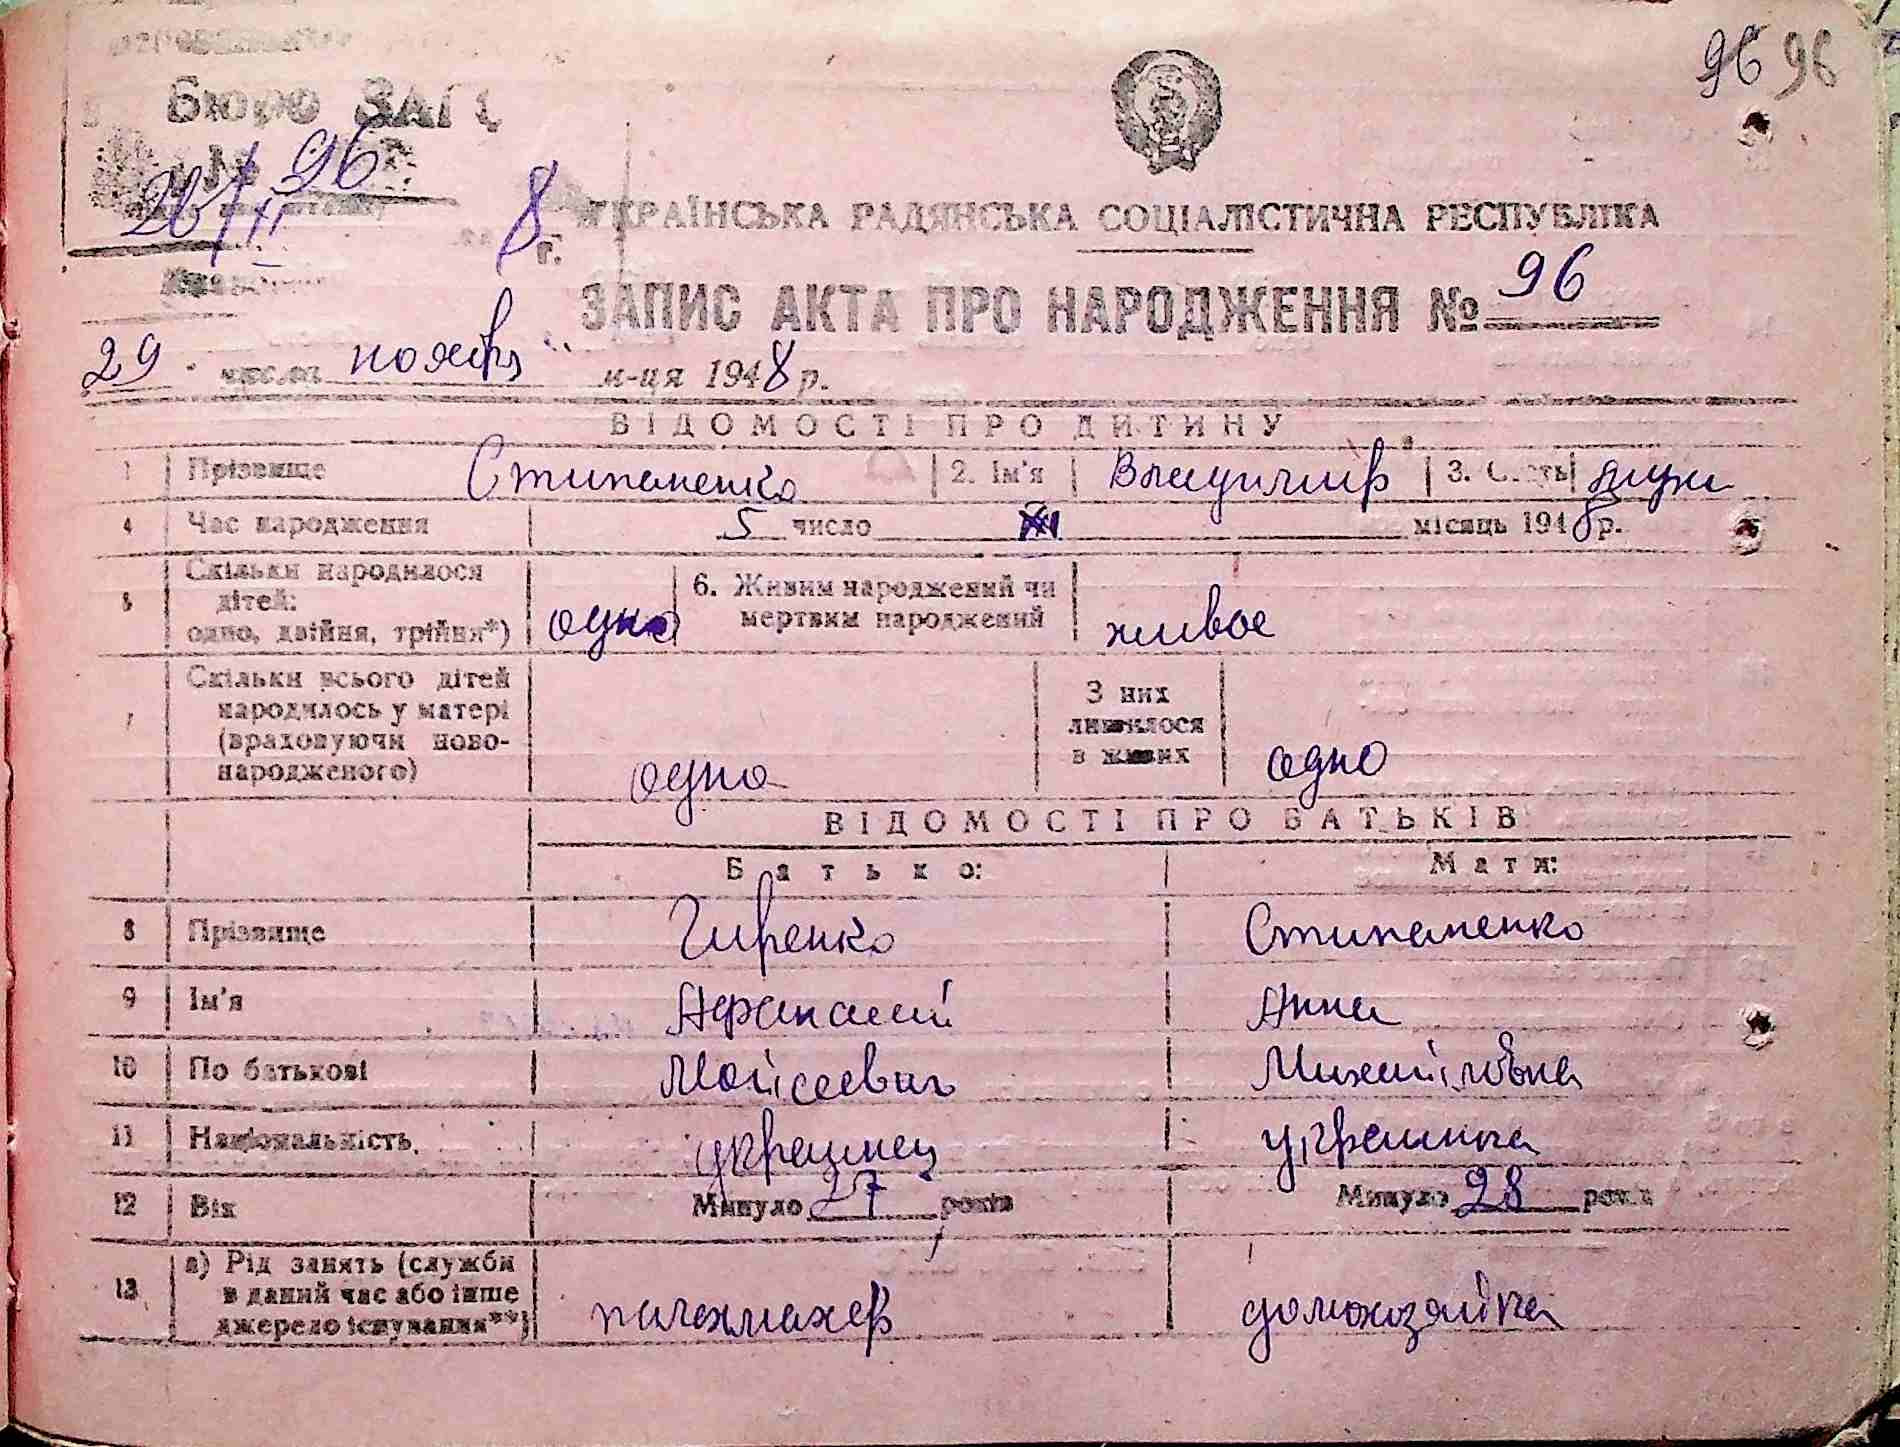 96 96
Бюро ЗАГС
№ 96
26/XI 8 г.
УКРАЇНСЬКА РАДЯНСЬКА СОЦІАЛІСТИЧНА РЕСПУБЛІКА
ЗАПИС АКТА ПРО НАРОДЖЕННЯ № 96
29 числа ноября м-ця 1948 р.
ВІДОМОСТІ ПРО ДИТИНУ
1 Прізвище Стипаненко 2. Ім'я Владимир 3. Стать муж
4 Час народження 5 число місяць 1948 р.
5 Скільки народилося дітей: одно, двійня, трійня*) одно 6. Живим народжений чи мертвим народжений живое
7 Скільки всього дітей народилось у матері (враховуючи ново-народженого) одно З них лишилося в живих одно
ВІДОМОСТІ ПРО БАТЬКІВ
Батько: Мати:
8 Прізвище Гиренко Стипаненко
9 Ім'я Афанасий Анна
10 По батькові Мойсеевич Михайловна
11 Національність украинец украинка
12 Вік Минуло 27 років Минуло 28 років
13 а) Рід занять (служби в даний час або інше джерело існування**) парехмахер домохозяйка